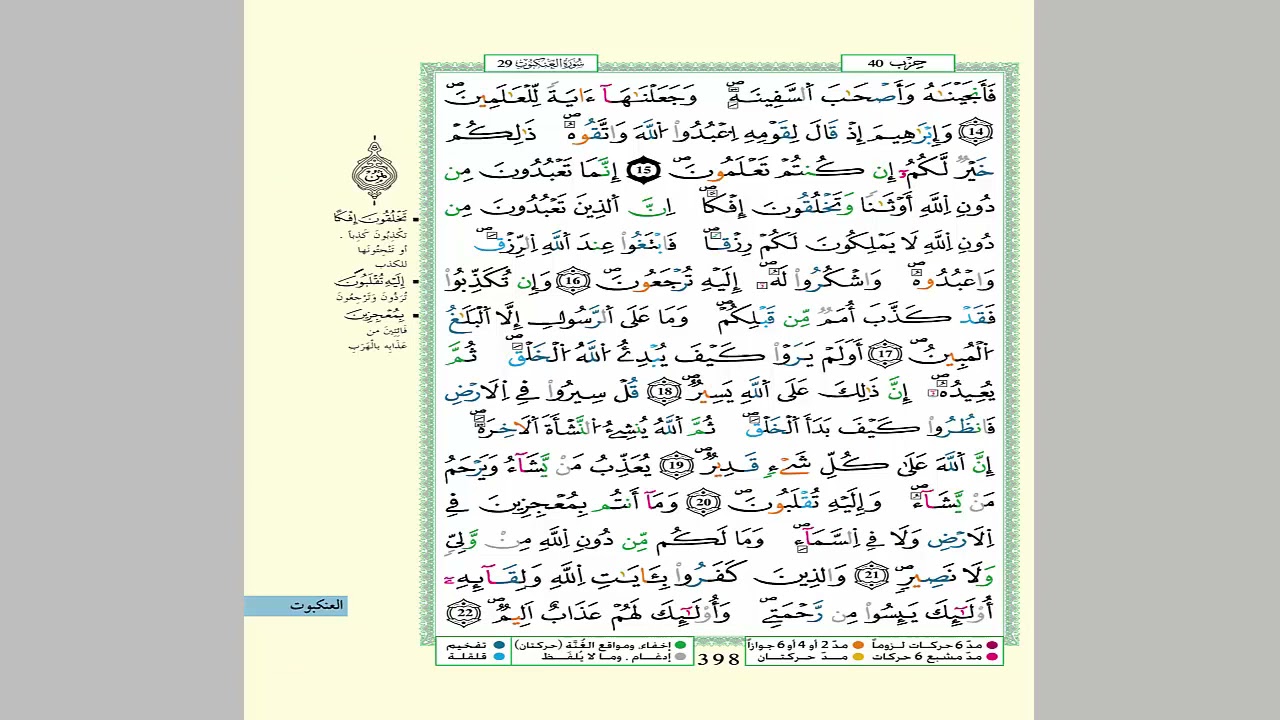 سورة العنكبوت 29
حزب 40
فَأَنجَيْنَٰهُ وَأَصْحَٰبَ اَ۬لسَّفِينَةِۖ وَجَعَلْنَٰهَآ ءَايَةٗ لِّلْعَٰلَمِينَۖ
14 وَإِبْرَٰهِيمَ إِذْ قَالَ لِقَوْمِهِ اِ۟عْبُدُواْ اُ۬للَّهَ وَاتَّقُوهُۖ ذَٰلِكُمْ
خَيْرٞ لَّكُمُۥٓ إِن كُنتُمْ تَعْلَمُونَۖ 15 إِنَّمَا تَعْبُدُونَ مِن
دُونِ اِ۬للَّهِ أَوْثَٰنٗا وَتَخْلُقُونَ إِفْكاًۖ اِنَّ اَ۬لذِينَ تَعْبُدُونَ مِن
دُونِ اِ۬للَّهِ لَا يَمْلِكُونَ لَكُمْ رِزْقاٗۖ فَابْتَغُواْ عِندَ اَ۬للَّهِ اِ۬لرِّزْقَۖ
وَاعْبُدُوهُۖ وَاشْكُرُواْ لَهُۥٓۖ إِلَيْهِ تُرْجَعُونَۖ 16 وَإِن تُكَذِّبُواْ
فَقَدْ كَذَّبَ أُمَمٞ مِّن قَبْلِكُمْۖ وَمَا عَلَى اَ۬لرَّسُولِ إِلَّا اَ۬لْبَلَٰغُ
اُ۬لْمُبِينُۖ 17 أَوَلَمْ يَرَوْاْ كَيْفَ يُبْدِئُ اُ۬للَّهُ اُ۬لْخَلْقَۖ ثُمَّ
يُعِيدُهُۥٓۖ إِنَّ ذَٰلِكَ عَلَى اَ۬للَّهِ يَسِيرٞۖ 18 قُلْ سِيرُواْ فِي اِ۬لَارْضِ
فَانظُرُواْ كَيْفَ بَدَأَ اَ۬لْخَلْقَۖ ثُمَّ اَ۬للَّهُ يُنشِئُ اُ۬لنَّشْأَةَ اَ۬لَاخِرَةَۖ
إِنَّ اَ۬للَّهَ عَلَىٰ كُلِّ شَےْءٖ قَدِيرٞۖ 19 يُعَذِّبُ مَنْ يَّشَآءُ وَيَرْحَمُ
مَنْ يَّشَآءُۖ وَإِلَيْهِ تُقْلَبُونَۖ 20 وَمَآ أَنتُم بِمُعْجِزِينَ فِي
اِ۬لَارْضِ وَلَا فِي اِ۬لسَّمَآءِۖ وَمَا لَكُم مِّن دُونِ اِ۬للَّهِ مِنْ وَّلِيّٖ
وَلَا نَصِيرٖۖ 21 وَالذِينَ كَفَرُواْ بِـَٔايَٰتِ اِ۬للَّهِ وَلِقَآئِهِۦٓ
أُوْلَٰٓئِكَ يَئِسُواْ مِن رَّحْمَتِےۖ وَأُوْلَٰٓئِكَ لَهُمْ عَذَابٌ اَلِيمٞۖ 22
ثمن
تَخْلُقُونَ إِفْكًا
تَكْذِبُونَ كَذِباً.
أو تَنْحِتُونَها
للكذب
إِلَيْهِ تُقْلَبُونَ
تُرَدُّونَ وَتُرْجَعُونَ
بِمُعْجِزِينَ
فَائِتِينَ من
عَذَابِه بالْهَرَبِ
العنكبوت
مدّ 6 حركات لزوماً
مدّ 2 أو 4 أو 6 جوازاً
مدّ مشبع 6 حركات
مدّ حركتان
398
إخفاء، ومواقع الغُنَّة (حركتان)
إدغام، وما لا يُلفَظ
تفخيم
قلقلة